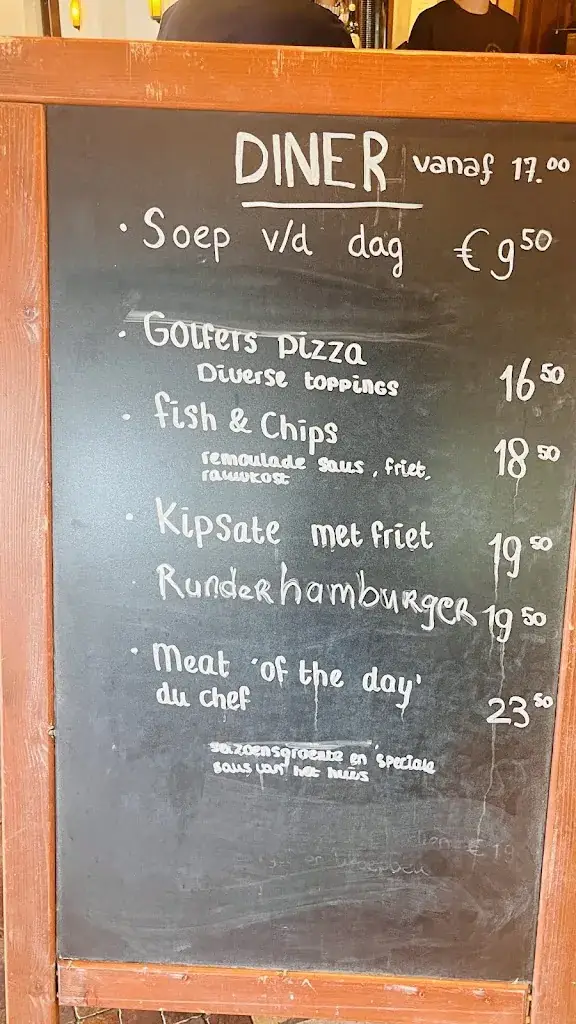 DINER vanaf 17.00
· Soep v/d dag € 9 50
· Golfers pizza
Diverse toppings 16 50
· fish & Chips 18 50
remoulade saus, friet,
rauwkost
· Kipsate met friet 19 50
· Runderhamburger 19 50
· Meat 'of the day'
du chef 23 50
seizoensgroente en speciale
saus van het huis
€ 19